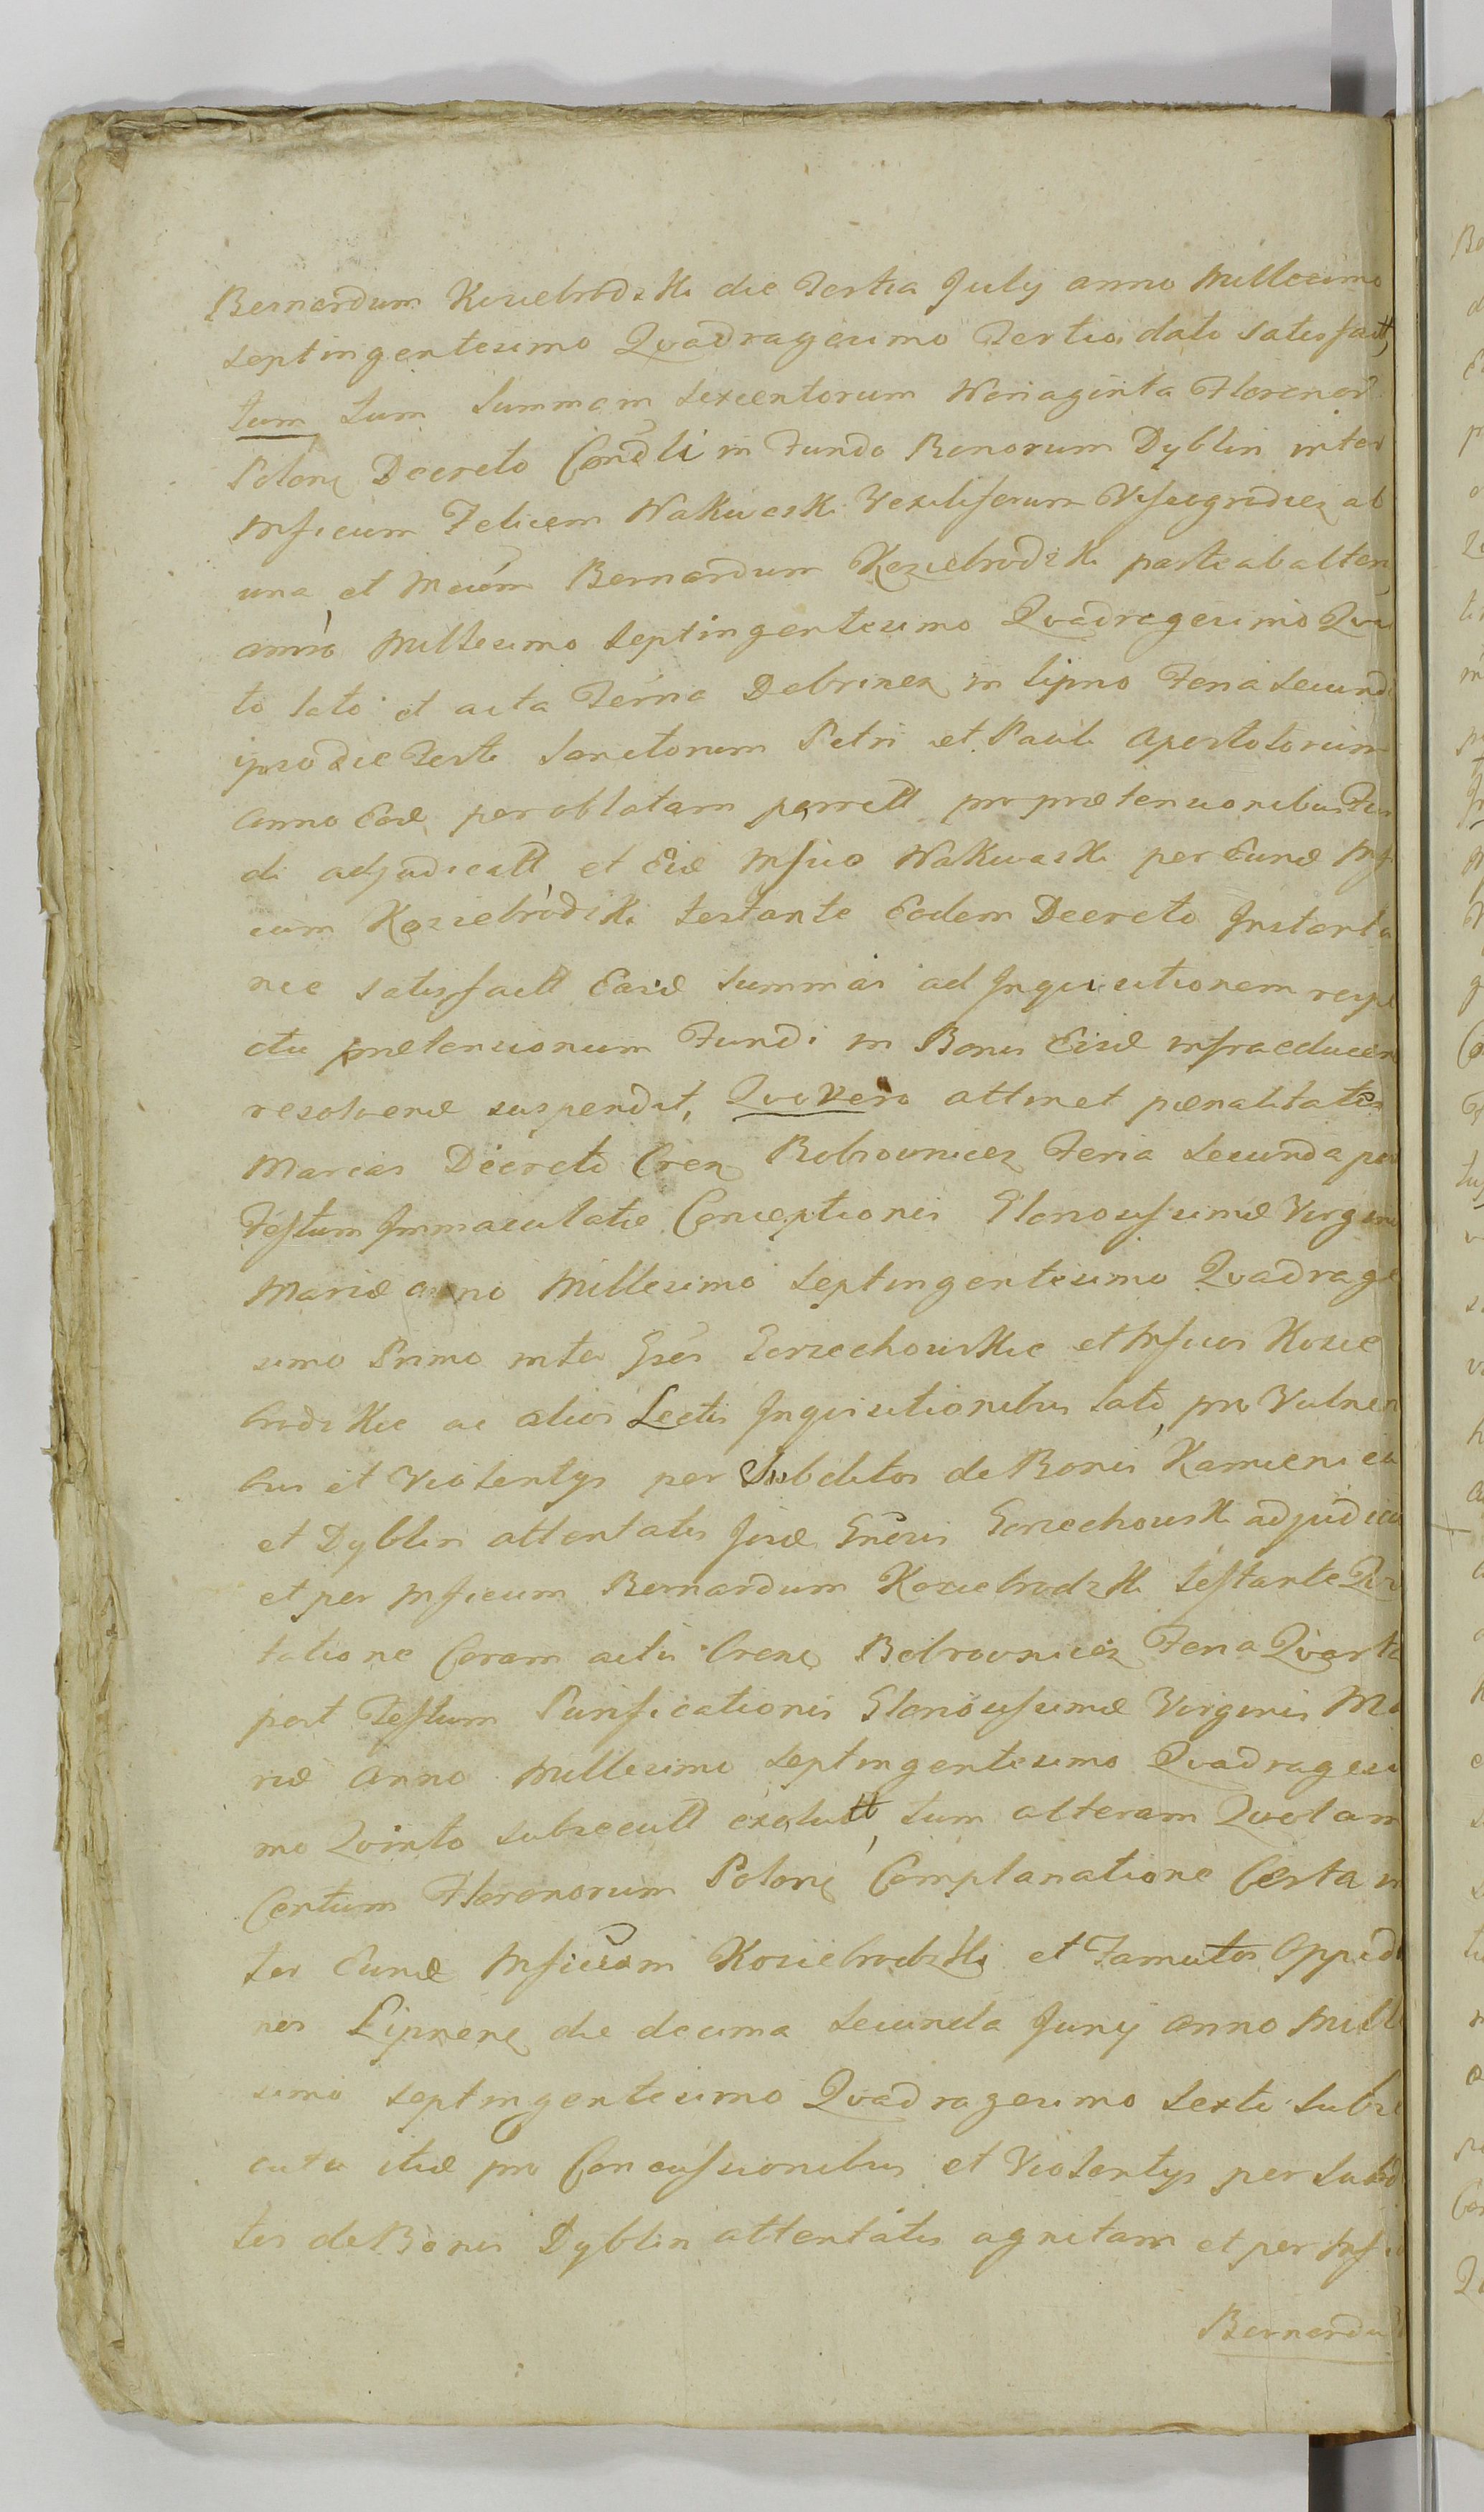 Bernardum Koziebrodzki die Tertia July anno Millesimo
septingentesimo Quadragesimo Tertio, dato satisfactt,
tum tum Summam sexcentorum Nonaginta Florenor
Polon Decreto Condli in Fundo Bonorum Dyblin inter
Mficum Felicem Nakwaski Vexiliferum Vissogradien ab
una, et Mcum Bernardum Koziebrodzki parte ab alter,
anno Millesimo septingentesimo Quadragesimo Quar
to lato et acta Terria Dobrinen in Lipno Feria Secund
ipso die Festi Sanctorum Petri et Pauli Apostolorum
Anno Eod per oblatam porrectt pro praetensionibus Fun
di adjudicatt et Eid Mfico Nakwaski per Eund Mfi
cum Koziebrodzki testante Eodem Decreto Instanta
nee satisfactt Easd Summas ad Inquisitionem respe
ctu praetensionum Fundi in Bonis Eisd infra educen
resolvend suspendit, Quo vero attinet paenalitates
Marcas Decreto Cren Bobrownicen Feria Secunda post
Festum Immaculatae Conceptionis Gloriosissimae Virginis
Mariae anno Millesimo septingentesimo Quadrage
simo Primo inter Gsos Gorzechowskie et Mficos Kozie
brodzkie ac alios Lectis Inquisitionibus lato, pro Vulneri
bus et Violentijs per Subditos de Bonis Kamienica
et Dyblin attentatis Iisd Gnosis Gorzechowski adjudica
et per Mficum Bernardum Koziebrodzki testante Qui
tatione Coram actis Cren Bobrownicen Feria Quarta
post Festum Purificationis Gloriosissimae Virginis Ma
riae Anno Millesimo septingentesimo Quadragesi
mo Quinto subsecutt exolutt, tum alteram Quotam
Centum Florenorum Polon Complanatione Certa in
ter Eund Mficum Koziebrodzki et Famatos Oppida
nos Lipnen die decima Secunda Juny anno Mille
simo septingentesimo Quadragesimo Sexto Subse
cuta itid pro Concussionibus et Violentijs per Subdi
tos de Bonis Dyblin attentatis agnitam et per Mfic
Bernardu